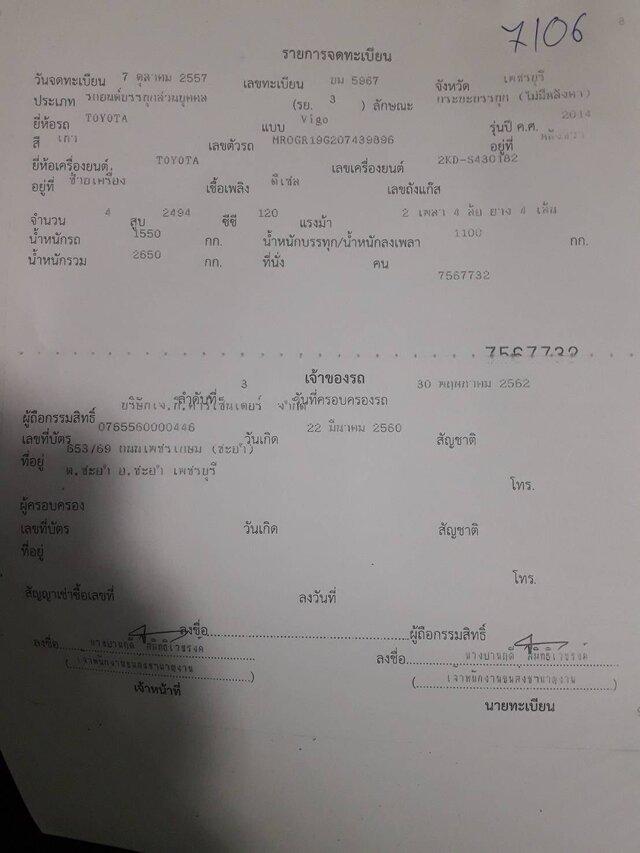 7106
8
รายการจดทะเบียน
วันจดทะเบียน 7 ตุลาคม 2557 เลขทะเบียน ขม 5967 จังหวัด เพชรบุรี
ประเภท รถยนต์บรรทุกส่วนบุคคล (รย. 3 ) ลักษณะ กระบะบรรทุก (ไม่มีหลังคา)
ยี่ห้อรถ TOYOTA แบบ Vigo รุ่นปี ค.ศ. 2014
สี เทา เลขตัวรถ MR0GR19G207439896 อยู่ที่
ยี่ห้อเครื่องยนต์. TOYOTA เลขเครื่องยนต์ 2KD-S430182
อยู่ที่ ซ้ายเครื่อง เชื้อเพลิง ดีเซล เลขถังแก๊ส
จำนวน 4 สูบ 2494 ซีซี 120 แรงม้า 2 เพลา 4 ล้อ ยาง 4 เส้น
น้ำหนักรถ 1550 กก. น้ำหนักบรรทุก/น้ำหนักลงเพลา 1100 กก.
น้ำหนักรวม 2650 กก. ที่นั่ง คน
7567732
7567732
เจ้าของรถ
ลำดับที่ 3 วันที่ครอบครองรถ 30 พฤษภาคม 2562
ผู้ถือกรรมสิทธิ์ บริษัทเจ.ที.คาร์เซ็นเตอร์ จำกัด
เลขที่บัตร 0765560000446 วันเกิด 22 มีนาคม 2560 สัญชาติ
ที่อยู่ 653/69 ถนนเพชรเกษม (ชะอำ)
ต.ชะอำ อ.ชะอำ เพชรบุรี
โทร.
ผู้ครอบครอง
เลขที่บัตร วันเกิด สัญชาติ
ที่อยู่
โทร.
สัญญาเช่าซื้อเลขที่ ลงวันที่
ลงชื่อ ผู้ถือกรรมสิทธิ์
ลงชื่อ
(เจ้าพนักงานขนส่งชำนาญงาน)
เจ้าหน้าที่
ลงชื่อ
(เจ้าพนักงานขนส่งชำนาญงาน)
นายทะเบียน